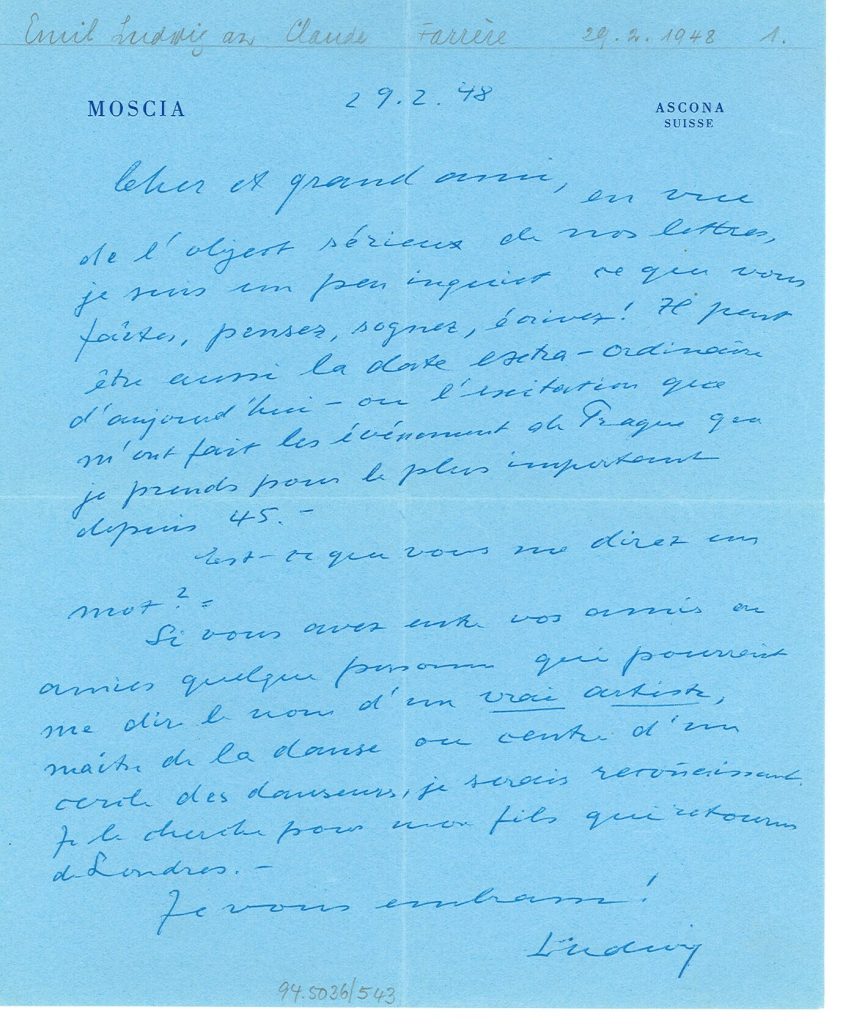 Emil Ludwig an Claude Farrère 29.2.1948 1.
MOSCIA
29.2.48
ASCONA
SUISSE
Cher et grand ami, en vue
de l'object sérieux de nos lettres,
je suis un peu inquiet ce que vous
faîtes, pensez, sognez, écrivez! Il peut
être aussi la date extra-ordinaire
d'aujourd'hui – ou l'exitation que
m'ont fait les événement de Prague que
je prends pour le plus important
depuis 45. –
Est-ce que vous me direz un
mot? =
Si vous avez entre vos amis ou
amies quelque personne qui pourrait
me dir le nom d'un vrai artiste,
maître de la danse ou centre d'un
cercle des danseurs, je serais reconnaissant.
Je le cherche pour mon fils qui retourne
de Londres. –
Je vous embrasse!
Ludwig
94.5036/543